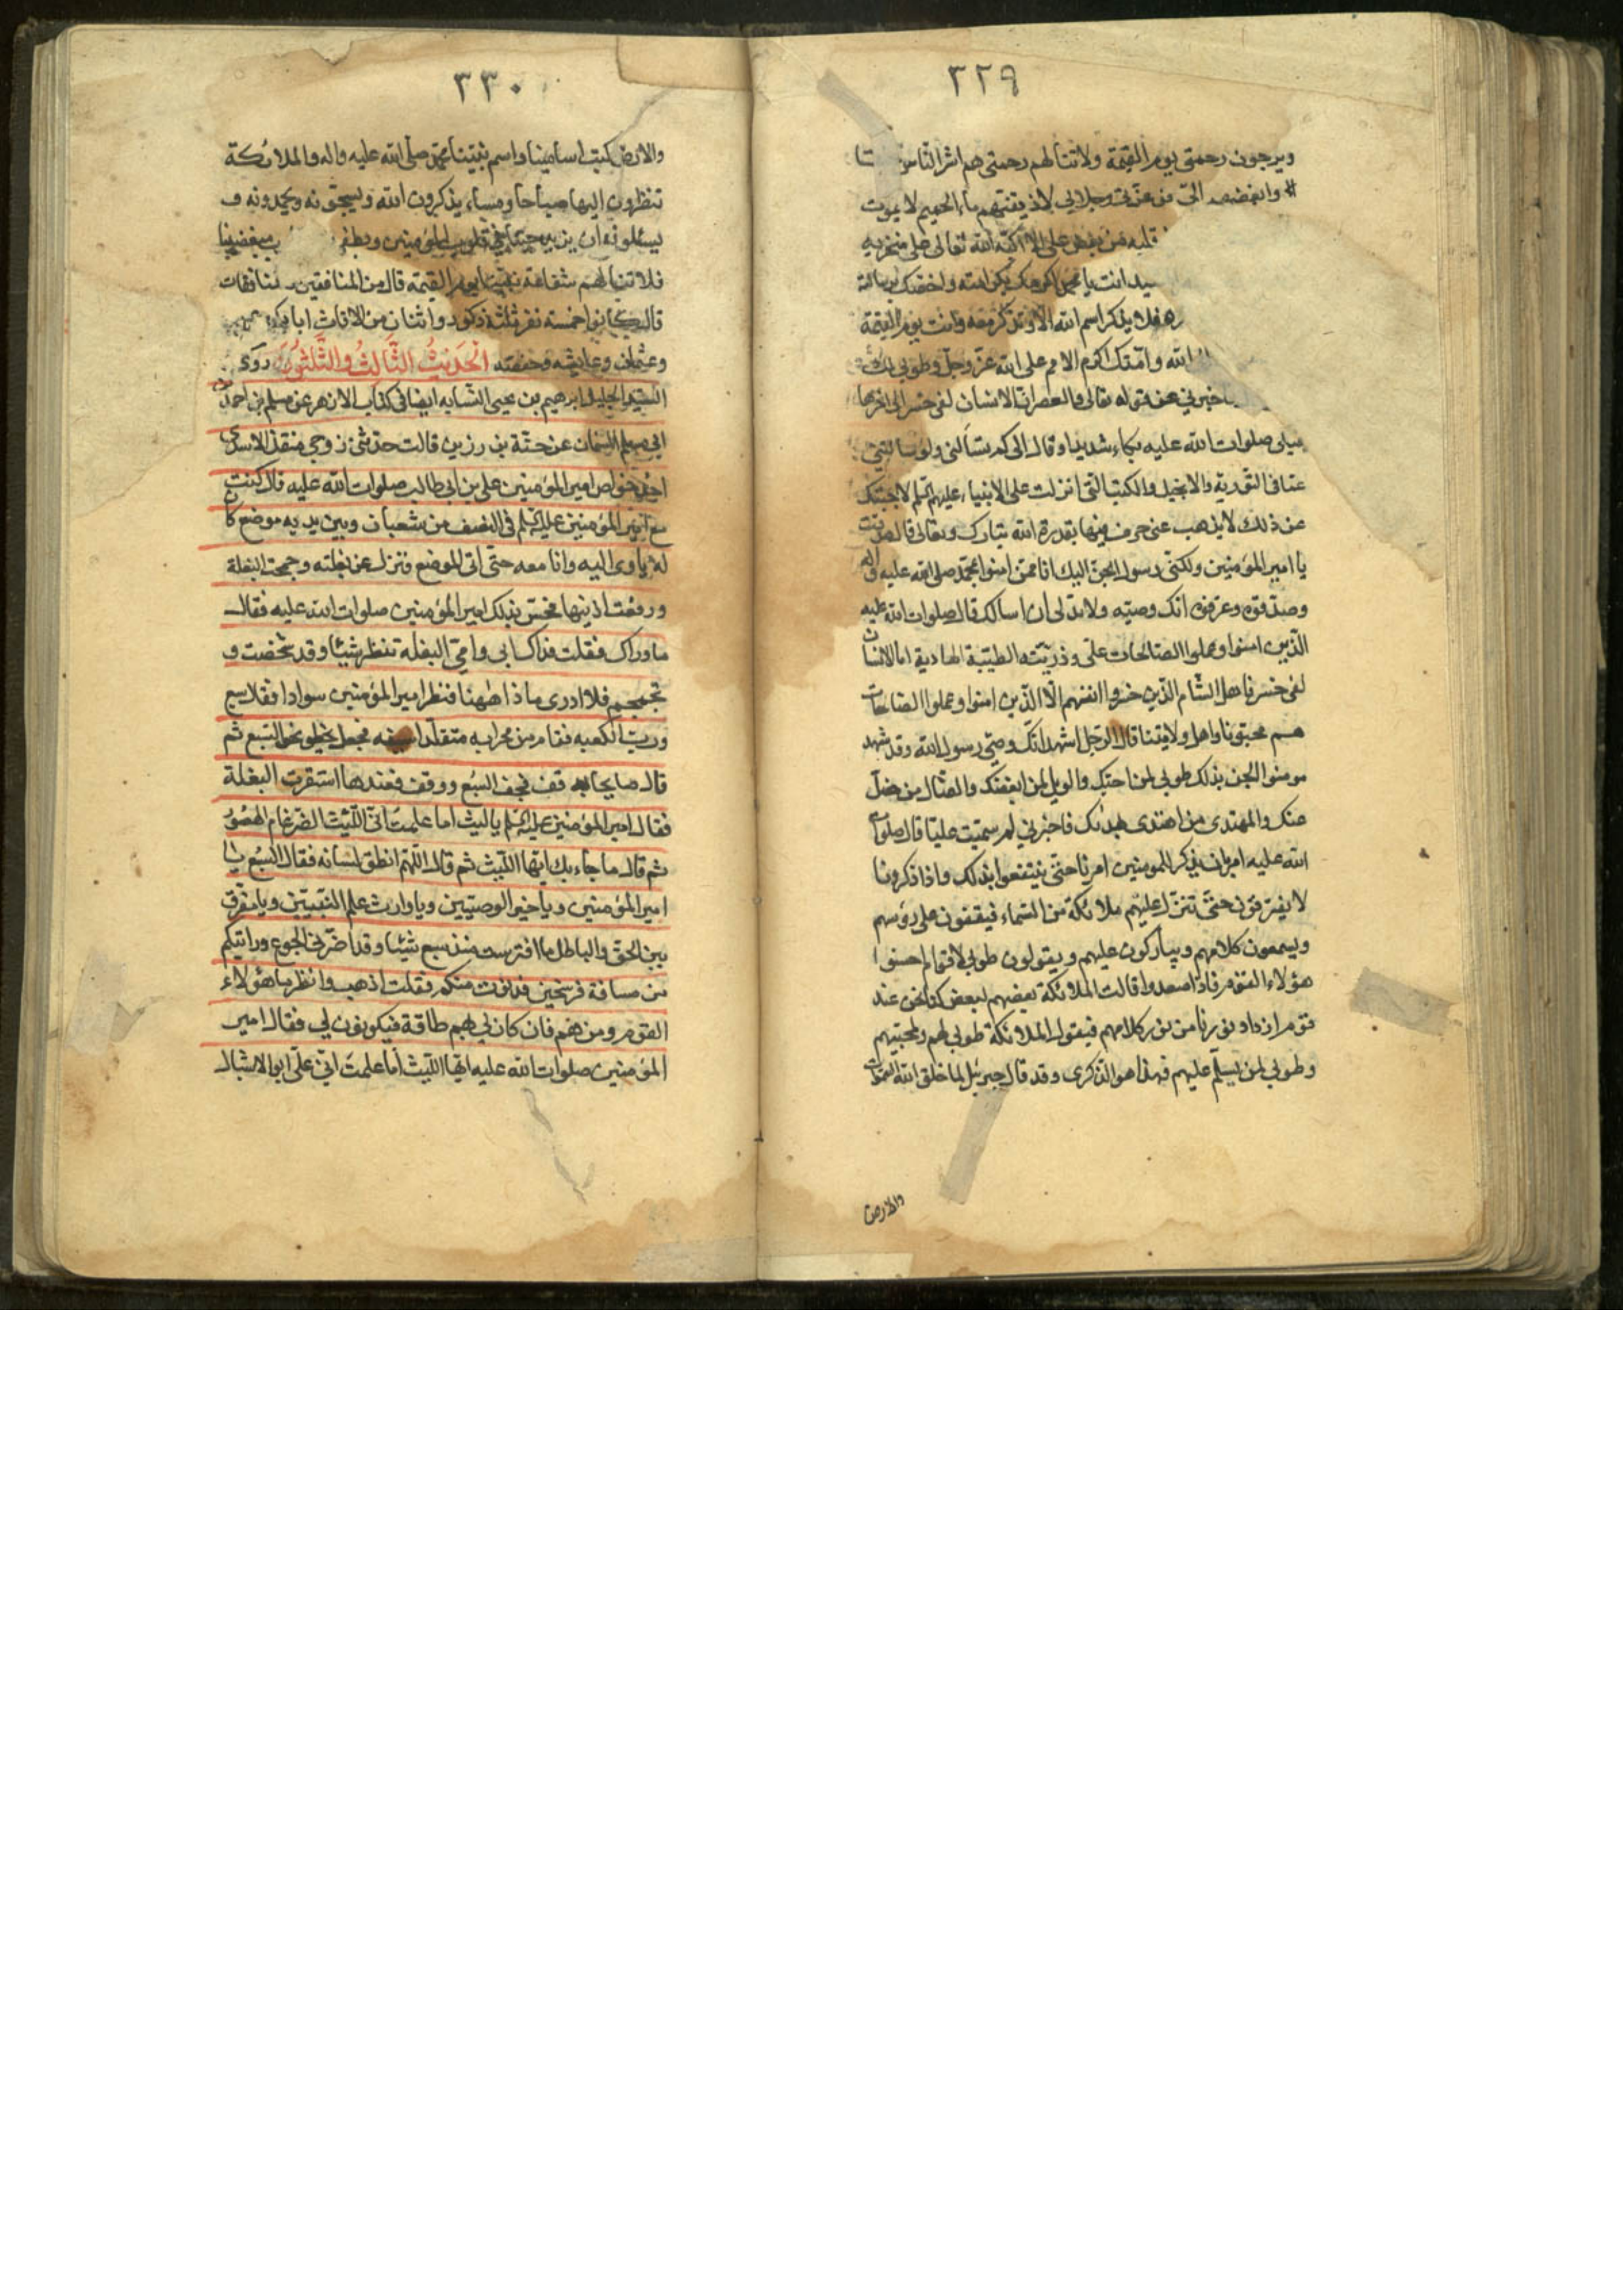 ٣٢٩
ويرجون رحمتي يوم القيمة ولا تنالهم رحمتي هم اشر الناس
وجلالي لاذيقنهم ماء الحميم لا يموت
قلبه من بغض علي الا اكبه الله تعالى على منخريه
انت يا محمد
فلا يذكر اسم الله الا وتذكر معه وانت يوم القيمة
الله وامتك اكرم الامم على الله عز وجل وطوبى لك
اخبرني عن قوله تعالى والعصر ان الانسان لفي خسر الى اخرها
صلوات الله عليه بكاء شديدا وقال الى كم تسألني ولو سالتني
عما في التورية والانجيل والكتب التي انزلت على الانبياء عليهم السلم لاجبتك
عن ذلك لا يذهب عني حرف منها بقدرة الله تبارك وتعالى قال صدقت
يا امير المؤمنين ولكني رسول الجن اليك انا ممن امنوا بمحمد صلى الله عليه واله
وصدقوه وعرفوه انك وصيه ولا بد لي ان اسالك قال صلوات الله عليه
الذين امنوا وعملوا الصالحات علي وذريته الطيبة الهادية اما الانسان
لفي خسر فاهل الشام الذين خسروا انفسهم الا الذين امنوا وعملوا الصالحات
هم محبونا واهل ولايتنا قال الرجل اشهد انك وصي رسول الله وقد شهد
مومنوا الجن بذلك طوبى لمن احبك والويل لمن ابغضك والضال من ضل
عنك والمهتدي من اهتدى بهداك فاخبرني لم سميت عليا قال صلوات
الله عليه امر بان يذكر المومنين امرنا حتى ينتفعوا بذلك واذا ذكرونا
لا يفترقون حتى تنزل عليهم ملائكة من السماء فيقفون على رؤسهم
ويسمعون كلامهم ويباركون عليهم ويقولون طوبى لاقوام احسنوا
هؤلاء القوم فاذا صعدوا قالت الملائكة بعضهم لبعض كنا نحن عند
قوم ازداد نورنا من نور كلامهم فيقول الملائكة طوبى لهم ولمحبيهم
وطوبى لمن يسلم عليهم فهذا هو الذكرى وقد قال جبرئيل لما خلق الله السموات
والارض
٣٣٠
والارض كتب اسامينا واسم نبينا محمد صلى الله عليه واله والملائكة
تنظرون اليها صباحا ومساء يذكرون الله ويسبحونه ويحمدونه و
يسئلونه ان يزيد حبنا في قلوب المؤمنين مبغضينا
فلا تنالهم شفاعة نبينا يوم القيمة قال من المنافقين والمنافقات
قال كانوا خمسة نفر ثلثة ذكور واثنان من الاناث ابا بكر وعمر
وعثمان وعايشه وحفصه الحديث الثالث والثلثون روى
السيد الجليل ابرهيم بن يحيى النسابه ايضا في كتاب الازهر عن مسلم بن احمد بن
ابي مسلم السمان عن حبة بن رزين قالت حدثني زوجي منقذ الاسدي
احد خواص امير المؤمنين علي بن ابي طالب صلوات الله عليه قال كنت
مع امير المؤمنين عليه السلم في النصف من شعبان وبين يديه موضع كان
له ياوى اليه وانا معه حتى اتى الموضع ونزل عن بغلته وجمحت البغلة
ورفعت اذنيها فحس بذلك امير المؤمنين صلوات الله عليه فقال
ما وراك فقلت فداك ابي وامي البغله تنظر شيئا وقد شخصت و
تحمحم فلا ادرى ماذا هيهنا فنظر امير المؤمنين سوادا فقال سبع
ورب الكعبه فقام من محرابه متقلدا سيفه فجعل يخطو نحو السبع ثم
قال صايحا به قف فخف السبع ووقف فعندها استقرت البغلة
فقال امير المؤمنين عليه السلم يا ليث اما علمت اني الليث الضرغام الهصور
ثم قال ما جاء بك ايها الليث ثم قال اللهم انطق لسانه فقال السبع يا
امير المؤمنين ويا خير الوصيين ويا وارث علم النبيين ويا مفرق
بين الحق والباطل ما افترست منذ سبع شيئا وقد اضر بي الجوع ورايتكم
من مسافة فرسخين فدنوت منكم فقلت اذهب وانظر ما هؤلاء
القوم ومن هم فان كان لي بهم طاقة فيكونون لي فقال امير
المؤمنين صلوات الله عليه ايها الليث اما علمت اني علي ابو الاشبال